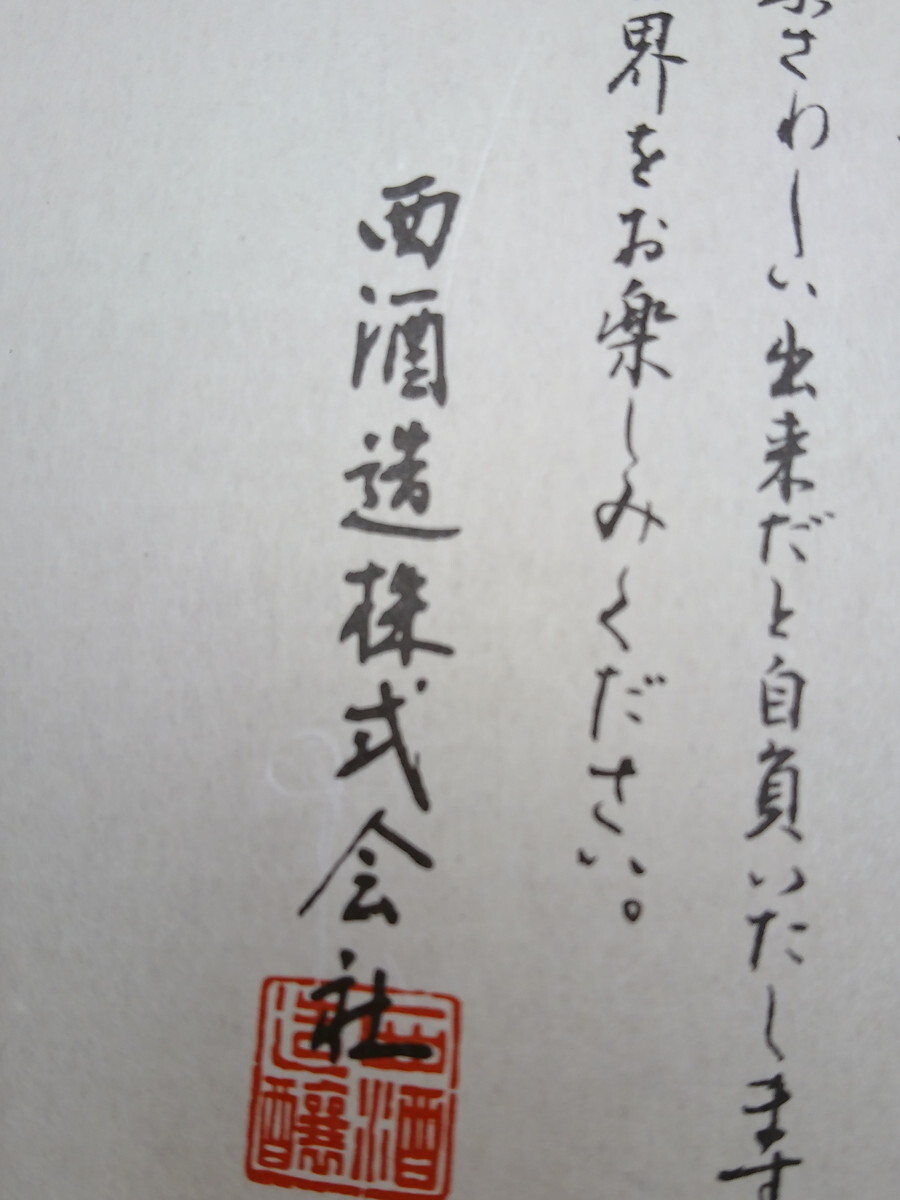 さわしい出来だと自負いたします
界をお楽しみください。
西酒造株式会社
西酒造醸